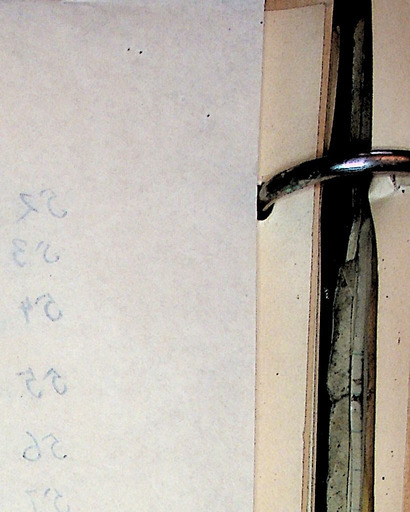 52
53
54
55
56
57